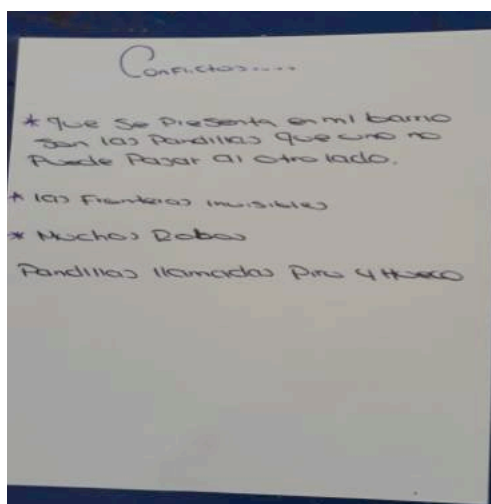 Conflictos.....
* que se presenta en mi barrio
son las Pandillas que uno no
Puede Pasar al otro lado.
* las Fronteras invisibles
* Muchos Robos
Pandillas llamadas Piru y Hueco